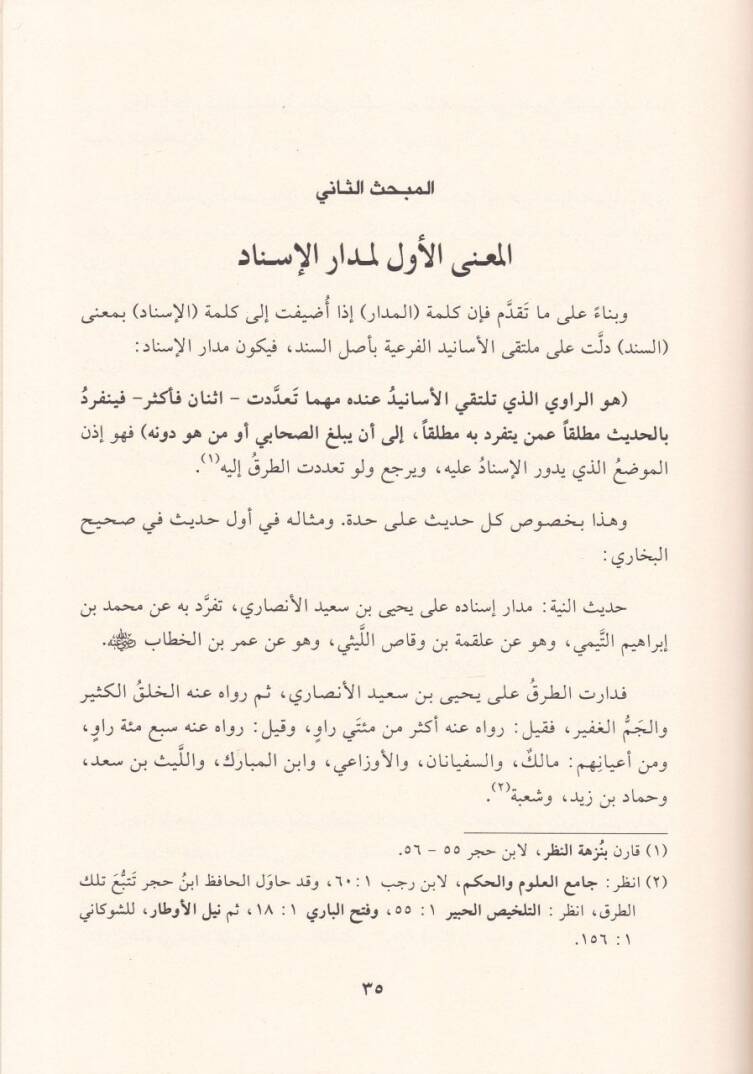 المبحث الثاني
المعنى الأول لمدار الإسناد
وبناءً على ما تَقدَّم فإن كلمة (المدار) إذا أُضيفت إلى كلمة (الإسناد) بمعنى
(السند) دلَّت على ملتقى الأسانيد الفرعية بأصل السند، فيكون مدار الإسناد:
(هو الراوي الذي تلتقي الأسانيدُ عنده مهما تَعدَّدت - اثنان فأكثر- فينفردُ
بالحديث مطلقاً عمن يتفرد به مطلقاً، إلى أن يبلغ الصحابي أو من هو دونه) فهو إذن
الموضعُ الذي يدور الإسنادُ عليه، ويرجع ولو تعددت الطرقُ إليه(١).
وهذا بخصوص كل حديث على حدة. ومثاله في أول حديث في صحيح
البخاري:
حديث النية: مدار إسناده على يحيى بن سعيد الأنصاري، تفرَّد به عن محمد بن
إبراهيم التَّيمي، وهو عن علقمة بن وقاص اللَّيثي، وهو عن عمر بن الخطاب رضي الله عنه.
فدارت الطرقُ على يحيى بن سعيد الأنصاري، ثم رواه عنه الخلقُ الكثير
والجَمُّ الغفير، فقيل: رواه عنه أكثر من مئتَي راوٍ، وقيل: رواه عنه سبع مئة راوٍ،
ومن أعيانِهم: مالكٌ، والسفيانان، والأوزاعي، وابن المبارك، واللَّيث بن سعد،
وحماد بن زيد، وشعبة(٢).
(١) قارن بنُزهة النظر، لابن حجر ٥٥ - ٥٦.
(٢) انظر: جامع العلوم والحكم، لابن رجب ١: ٦٠، وقد حاوَل الحافظ ابنُ حجر تَتبُّعَ تلك
الطرق، انظر: التلخيص الحبير ١: ٥٥، وفتح الباري ١: ١٨، ثم نيل الأوطار، للشوكاني
١: ١٥٦.
٣٥